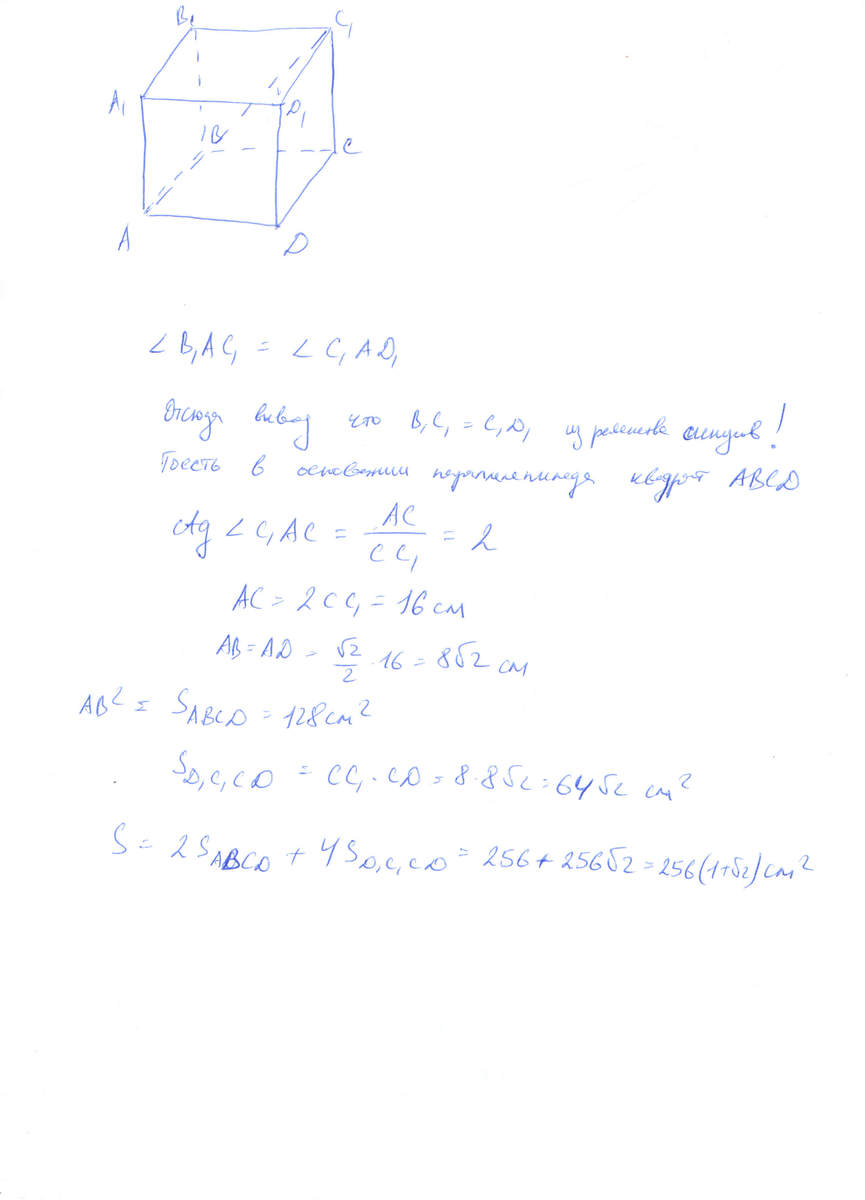 B₁ C₁
A₁ D₁
B C
A D
∠ B₁AC₁ = ∠ C₁AD₁
Отсюда вывод что B₁C₁ = C₁D₁ из равенства синусов!
Тоесть в основании параллелепипеда квадрат ABCD
ctg ∠ C₁AC = AC / CC₁ = 2
AC = 2CC₁ = 16 см
AB = AD = √2/2 · 16 = 8√2 см
AB² = S_ABCD = 128 см²
S_D₁C₁CD = CC₁ · CD = 8 · 8√2 = 64√2 см²
S = 2S_ABCD + 4S_D₁C₁CD = 256 + 256√2 = 256(1+√2) см²